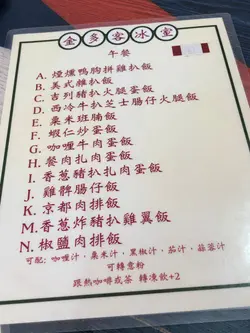 金多客冰室
午餐
A. 煙燻鴨胸拼雞扒飯
B. 美式雜扒飯
C. 吉列豬扒火腿蛋飯
D. 西冷牛扒芝士腸仔火腿飯
E. 粟米班腩飯
F. 蝦仁炒蛋飯
G. 咖喱牛肉蛋飯
H. 餐肉扎肉蛋飯
I. 香蔥豬扒扎肉蛋飯
J. 雞髀腸仔飯
K. 京都肉排飯
M. 香蔥炸豬扒雞翼飯
N. 椒鹽肉排飯
可配: 咖喱汁，粟米汁，黑椒汁，茄汁，蒜蓉汁
可轉意粉
跟熱咖啡或茶 轉凍飲+2